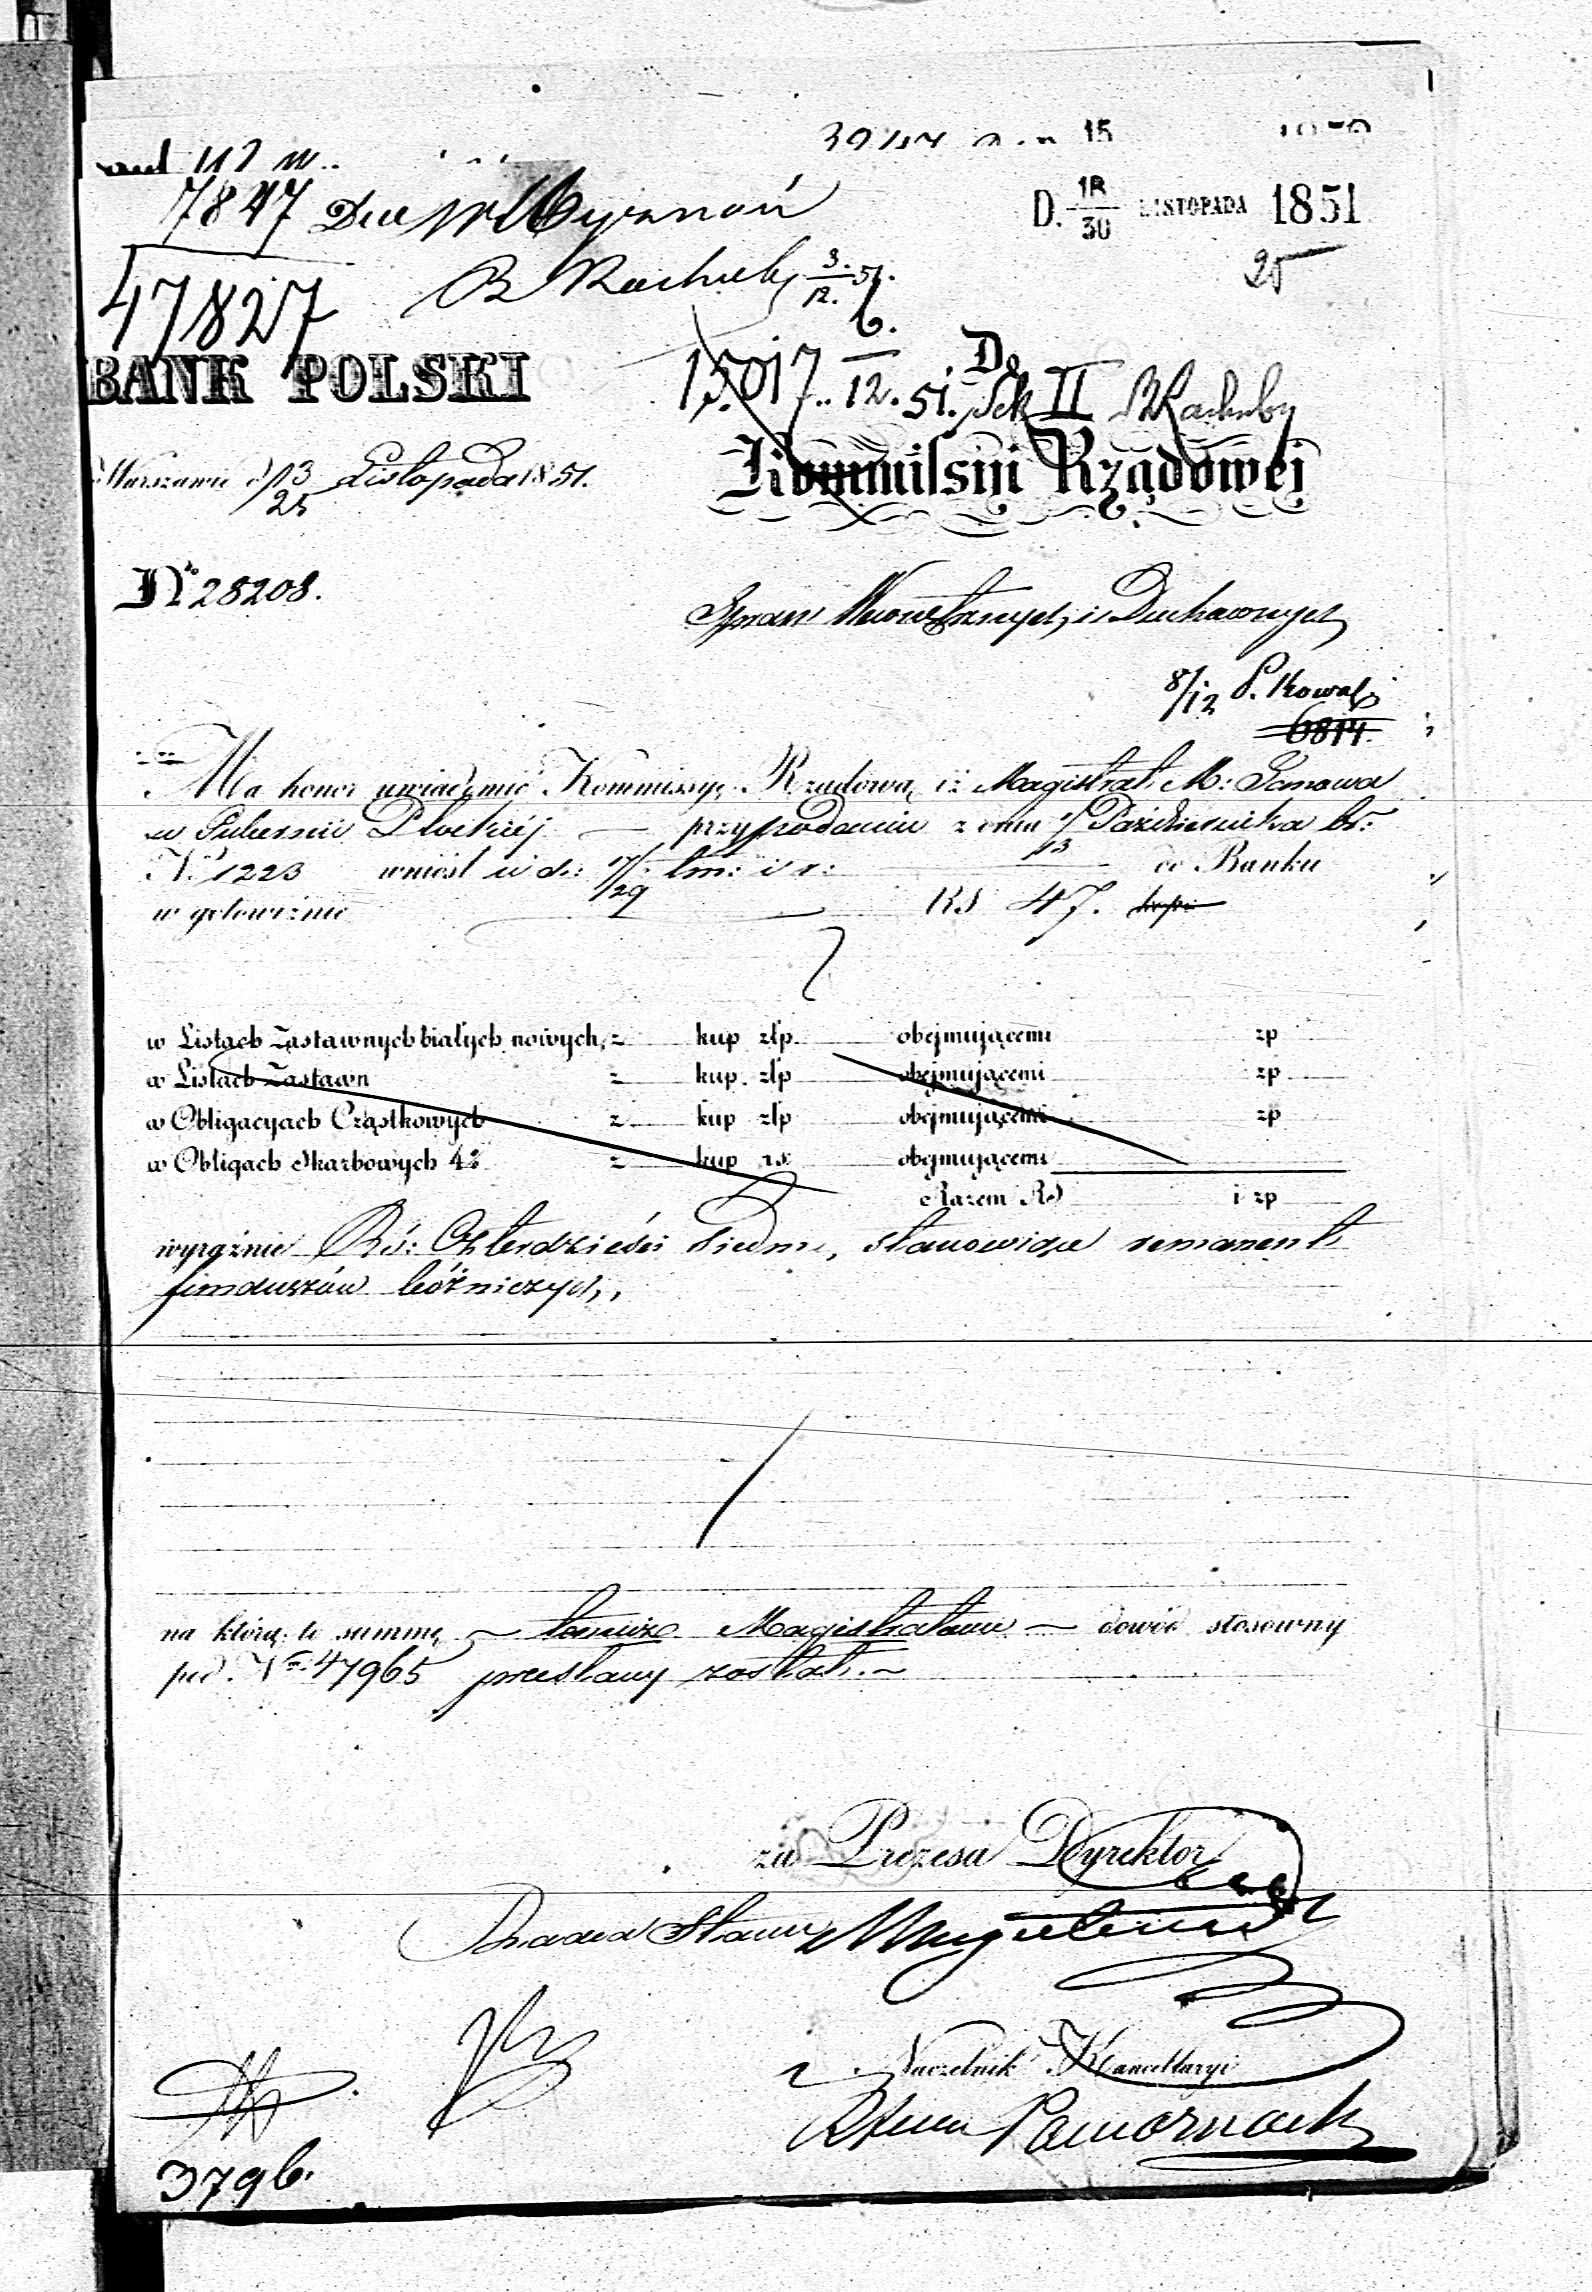 7847
D. 18/30 LISTOPADA 1851
25
47827
3./12. 51.
BANK POLSKI
15017.. 6./12. 51. Sek II
Do
Kommissyi Rządowej
Warszawie d 13/25 Listopada 1851.
Nº 28208.
Spraw Wewnętrznych, i Duchownych
8/12 P. Kowals
6814
Ma honor uwiadomić Kommissyę Rządową iż Magistrat M: Janowa
w Gubernii Płockiéj — przy podaniu z dnia 1/13 Października br:
Nº 1223 wniósł w d: 17/29 tm: i r: do Banku
w gotowiźnie RS 47.
w Listach Zastawnych białych nowych, z kup złp. obejmującemi zp
w Listach Zastawn z kup. złp obejmującemi zp
w Obligacyach Cząstkowych z kup złp obejmującemi zp
w Obligach Skarbowych 4% z kup rs obejmującemi
Razem RS i zp
wyraźnie Rś: Czterdzieści Siedm, stanowiące remanent
funduszów bóżniczych,
na którą to summę — temuże Magistratowi — dowód stosowny
pod Nrem 47965 przesłany został. —
za Prezesa Dyrektor
Radca Stanu
Naczelnik Kancellaryi
3796.